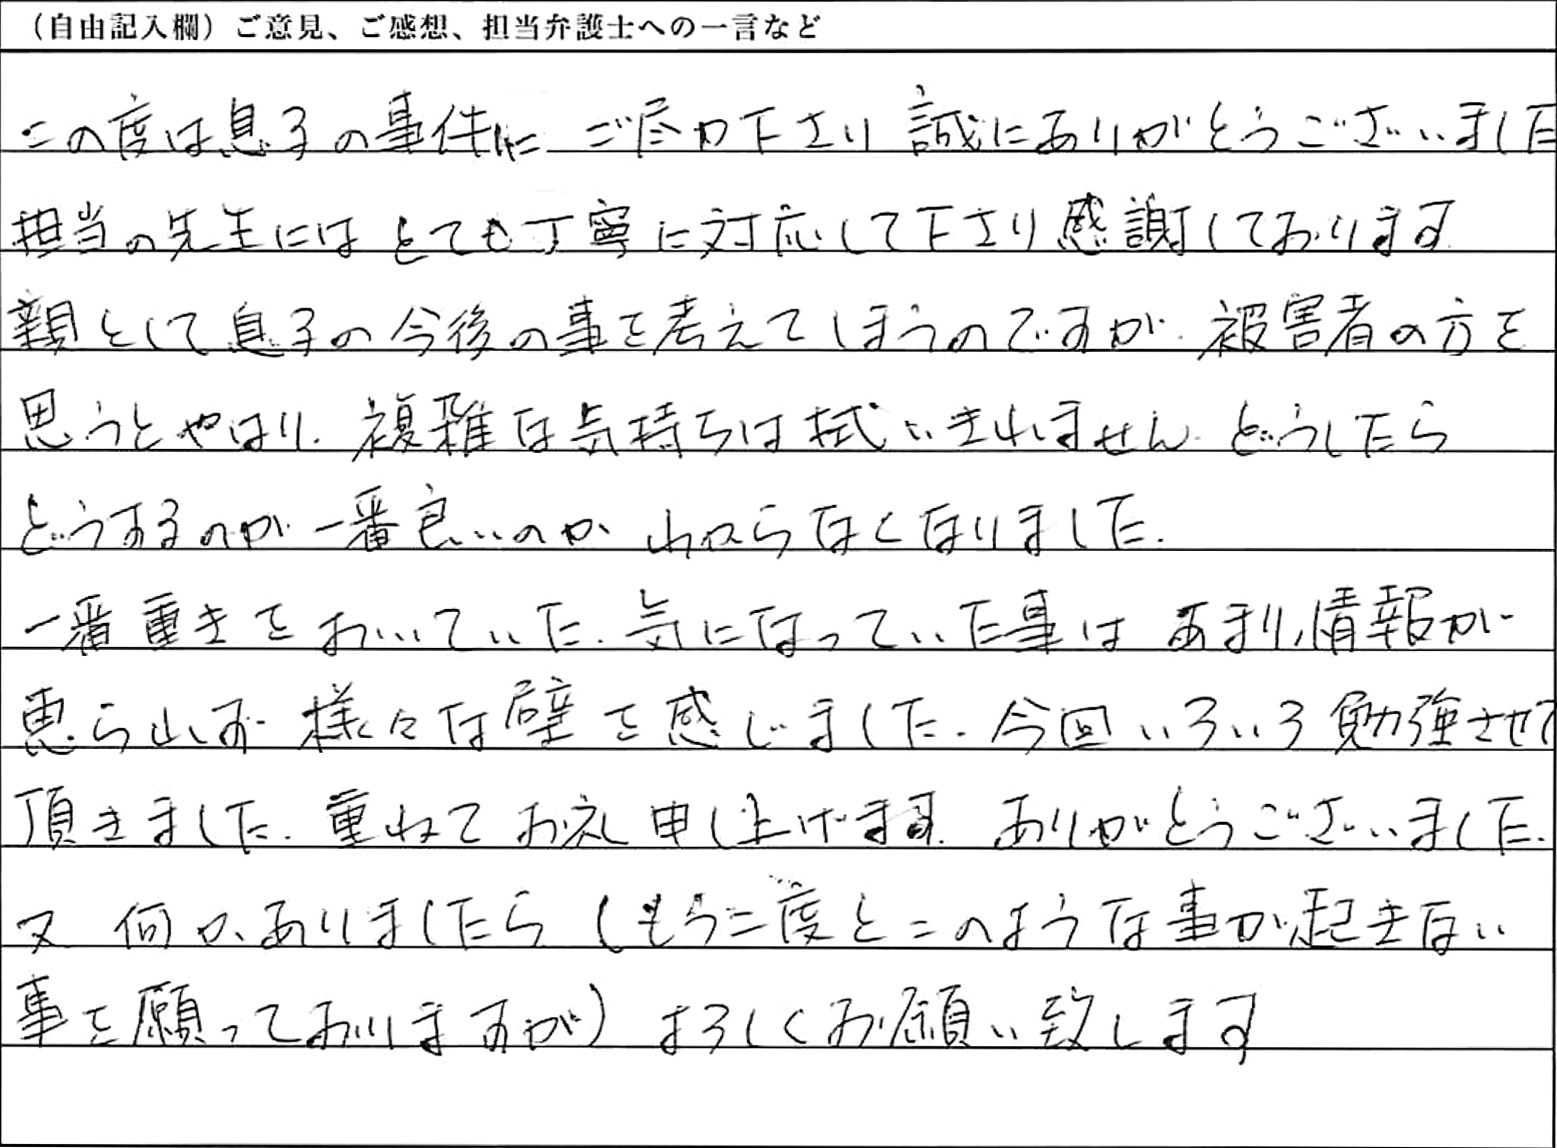 （自由記入欄）ご意見、ご感想、担当弁護士への一言など
この度は息子の事件に ご尽力下さり 誠にありがとうございました
担当の先生には とても丁寧に対応して下さり感謝しております
親として息子の今後の事を考えてしまうのですが、被害者の方を
思うとやはり、複雑な気持ちは拭いきれません。どうしたら
どうするのが一番良いのか わからなくなりました。
一番重きをおいていた、気になっていた事は あまり情報が
恵られず 様々な壁を感じました。今回いろいろ勉強させて
頂きました。重ねてお礼申し上げます。ありがとうございました。
又 何かありましたら（もう二度とこのような事が起きない
事を願っておりますが）よろしくお願い致します